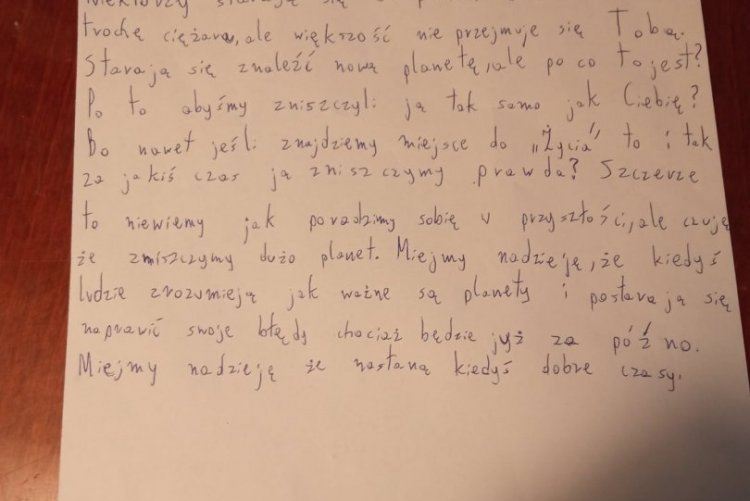 trochę ciężaru, ale większość nie przejmuje się Tobą.
Starają się znaleźć nową planetę, ale po co to jest?
Po to abyśmy zniszczyli ją tak samo jak Ciebię?
Bo nawet jeśli znajdziemy miejsce do „Życia” to i tak
za jakiś czas ją zniszczymy prawda? Szczerze
to niewiemy jak poradzimy sobię w przyszłości, ale czuję
że zniszczymy dużo planet. Miejmy nadzieję, że kiedyś
ludzie zrozumieją jak ważne są planety i postarają się
naprawić swoje błędy chociaż będzie już za póżno.
Miejmy nadzieję że nastaną kiedyś dobre czasy.